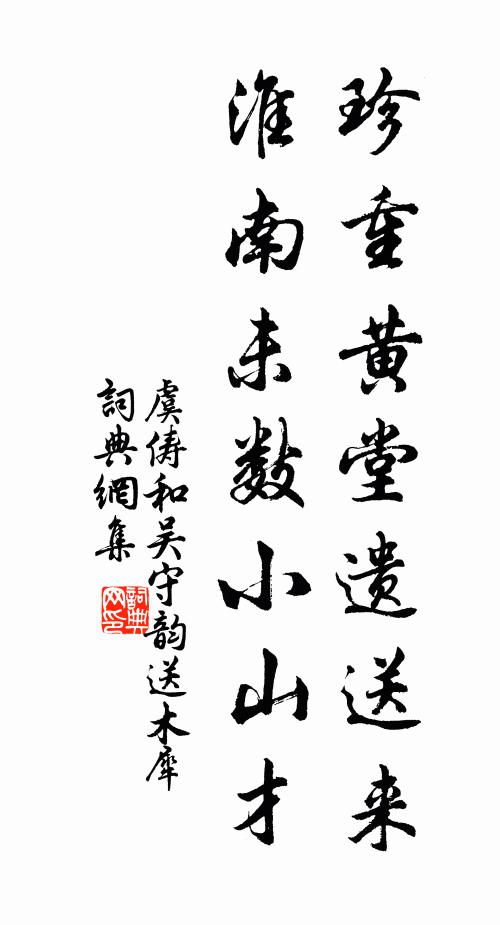 珍重黄堂遗送来
淮南未数小山才
虞俦和吴守韵送木犀
詞典網集
詞典网印